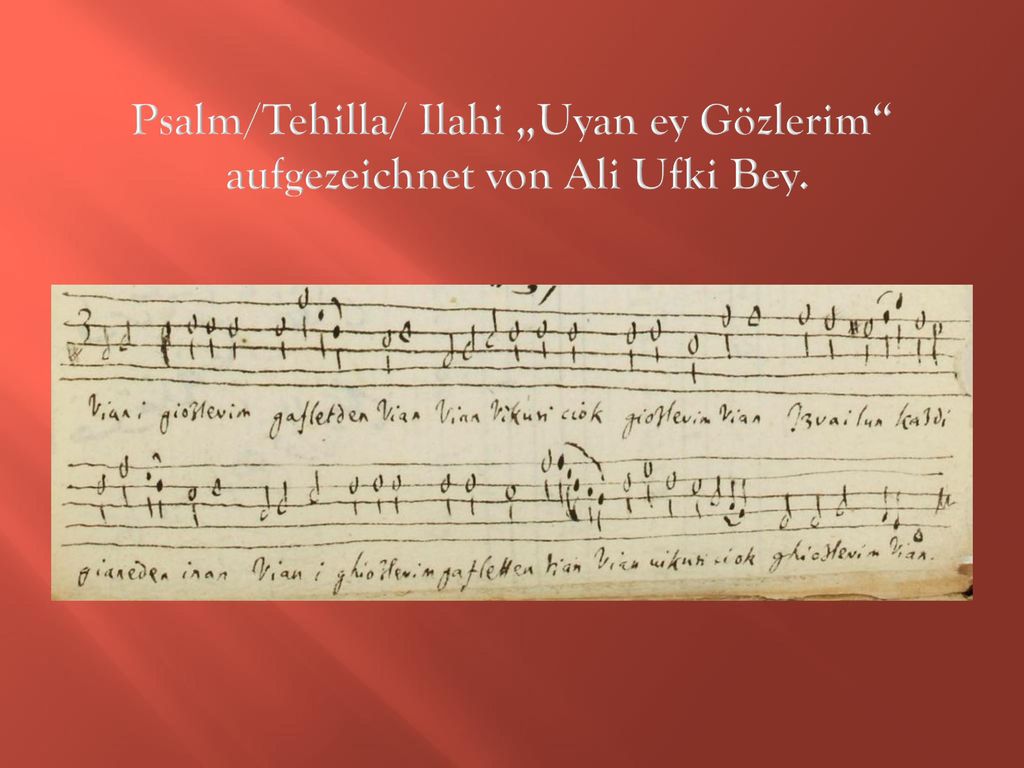 Psalm/Tehilla/ Ilahi „Uyan ey Gözlerim“
aufgezeichnet von Ali Ufki Bey.
3
Vian i gioslerim gafletden Vian Vian Vikusi ciok gioslerim Vian kasdi
gianeden inan Vian i ghioslerim gafletten Vian Vian uikusi ciok ghioslerim Vian.